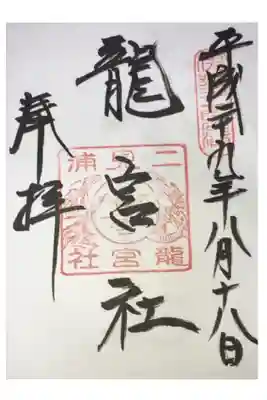 平成二十九年八月十八日
龍宮社
二見浦
龍宮社
奉拝